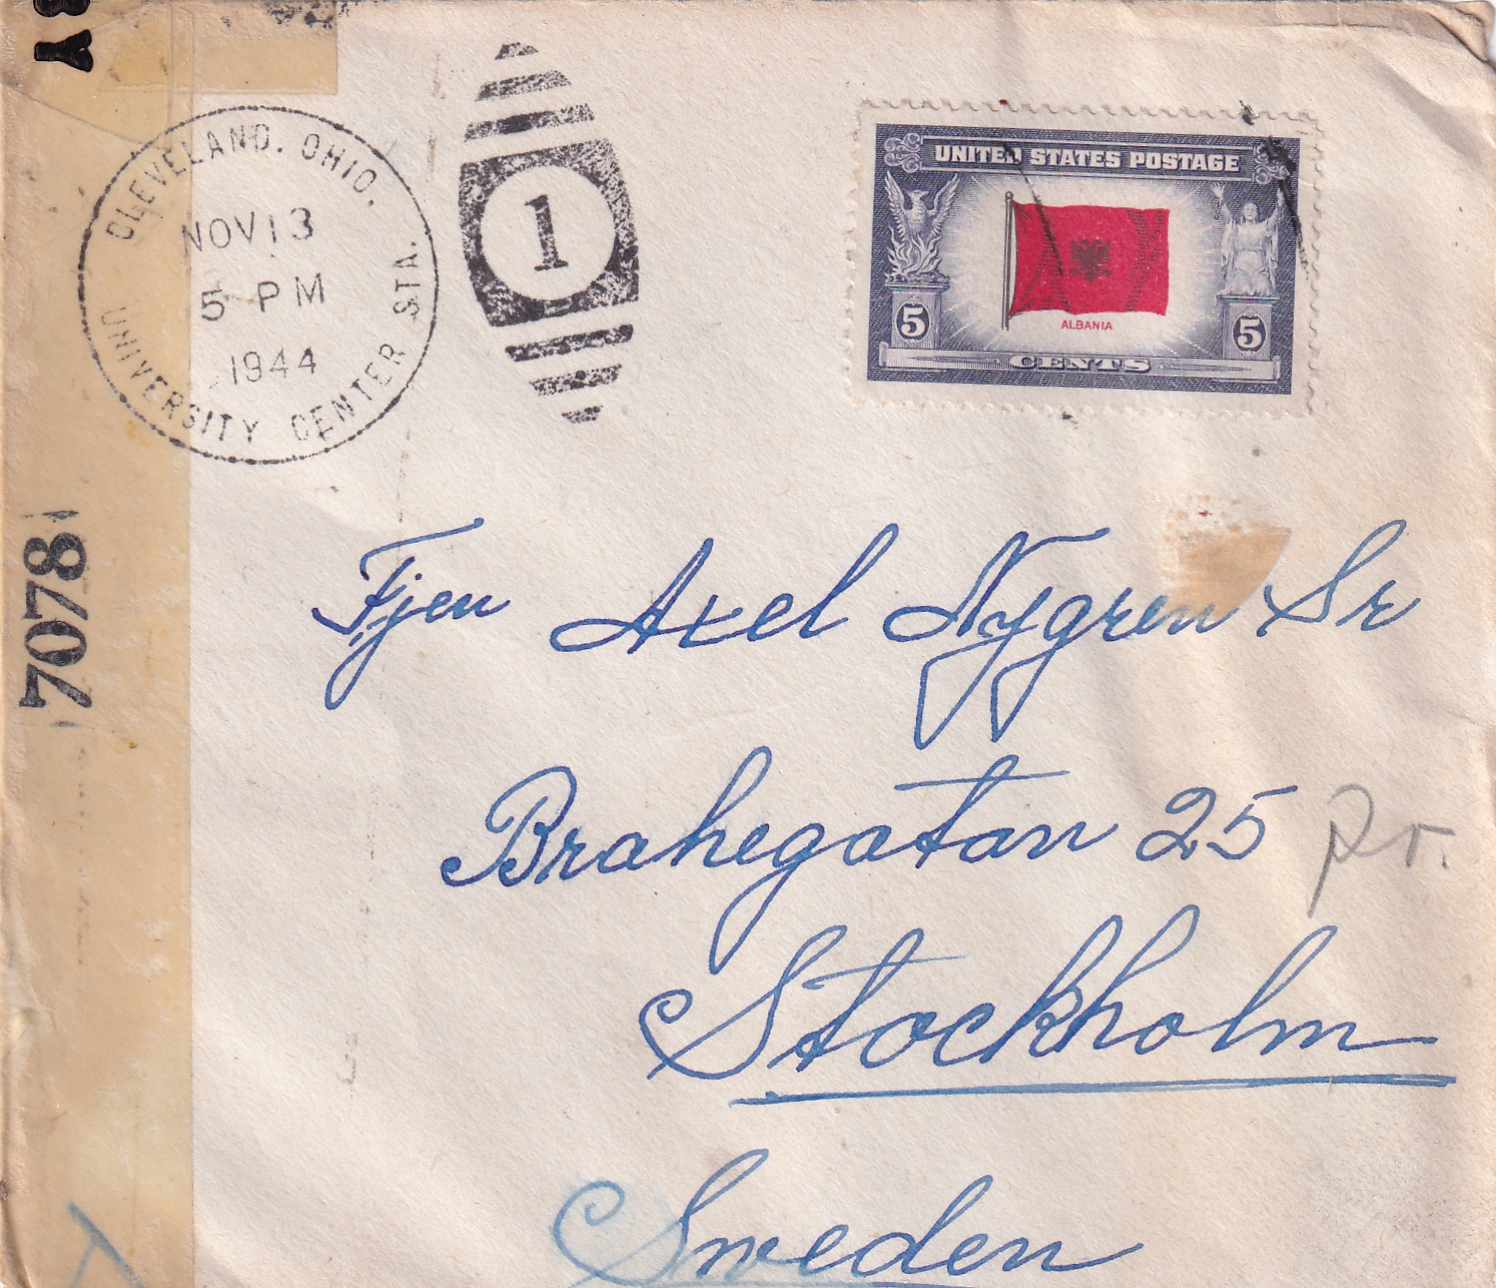 CLEVELAND, OHIO.
NOV 13
5 PM
1944
UNIVERSITY CENTER STA.
1
UNITED STATES POSTAGE
ALBANIA
5 5
CENTS
7078
Axel Nygren Sr
Brahegatan 25 pr.
Stockholm
Sweden